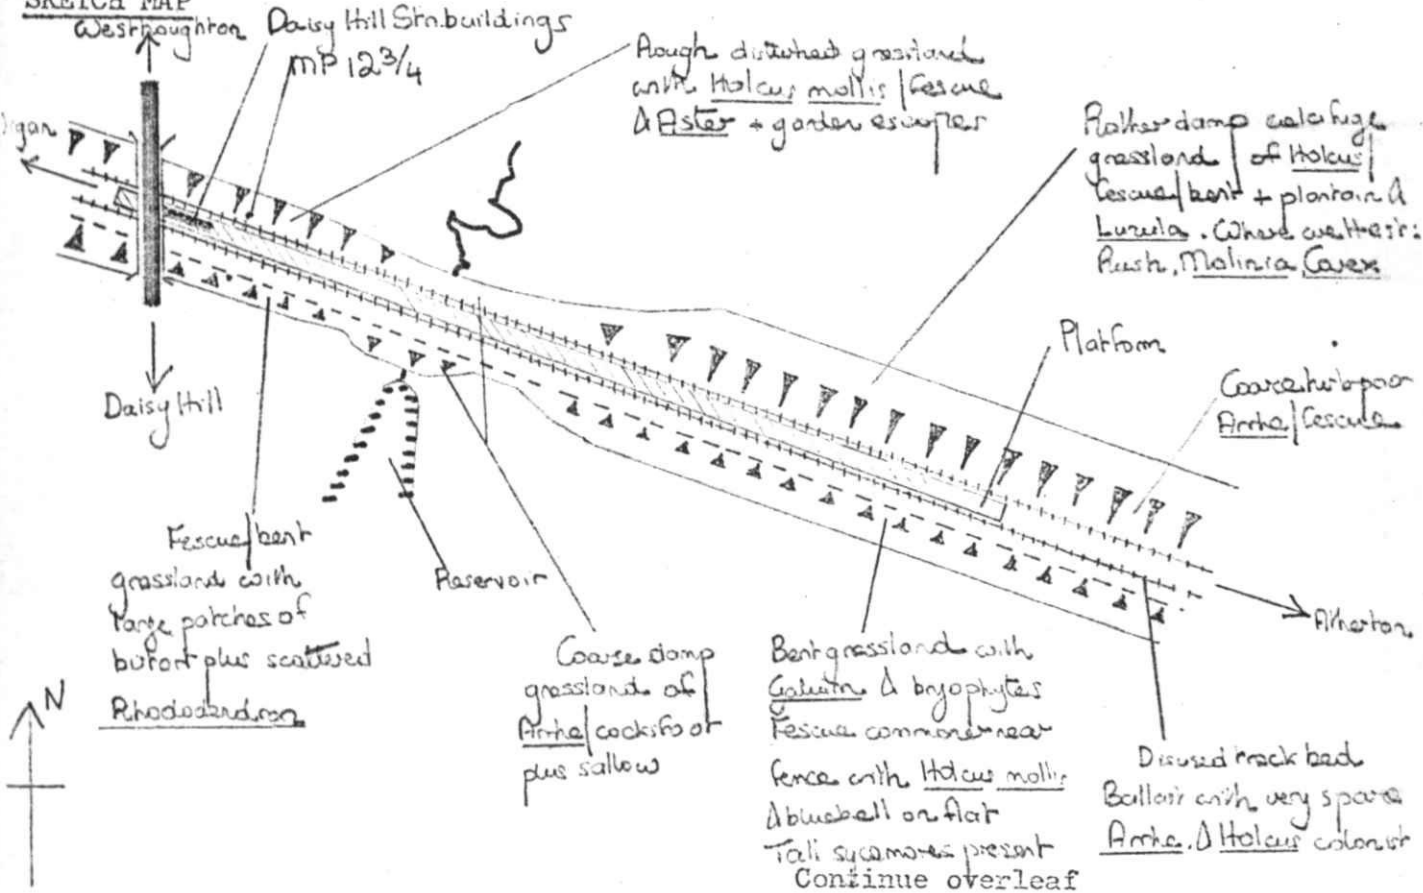 SKETCH MAP
Westhoughton
Daisy Hill Stn. buildings
MP 12 3/4
Rough disturbed grassland
with Holcus mollis/fescue
& Aster + garden escapes
Rather damp calcifuge
grassland of Holcus/
fescue/bent + plantain &
Luzula. Where wettest:
Rush, Molinia, Carex
igan
Platform
Coarse herb poor
Arrhe/fescue
Daisy Hill
Fescue/bent
grassland with
large patches of
plus scattered
Rhododendron
Reservoir
Coarse damp
grassland of
Arrhe/cocksfoot
plus sallow
Bent grassland with
Galium & bryophytes
Fescue commoner near
fence with Holcus mollis
& bluebell on flat
Tall sycamores present
Continue overleaf
Atherton
Disused track bed
Ballast with very sparse
Arrhe. & Holcus colonist
N